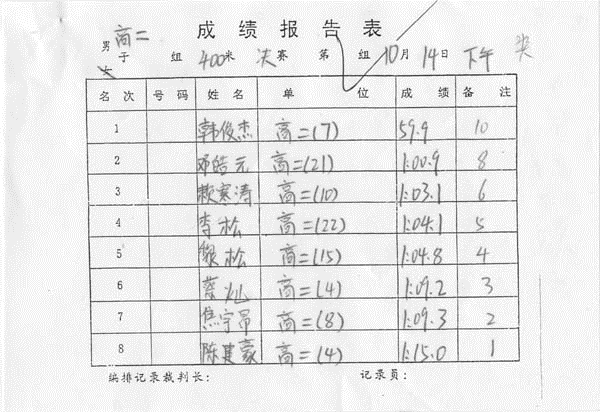 成绩报告表
高二
男子 组 400米 决赛 第 组 10月14日 下午
女
名次 号码 姓名 单位 成绩 备注
1 韩俊杰 高二(7) 59.9 10
2 邓皓元 高二(21) 1:00.9 8
3 寒涛 高二(10) 1:03.1 6
4 李松 高二(22) 1:04.1 5
5 松 高二(15) 1:04.8 4
6 蔡灿 高二(4) 1:09.2 3
7 焦宇昂 高二(8) 1:09.3 2
8 陈建豪 高二(4) 1:15.0 1
编排记录裁判长: 记录员: